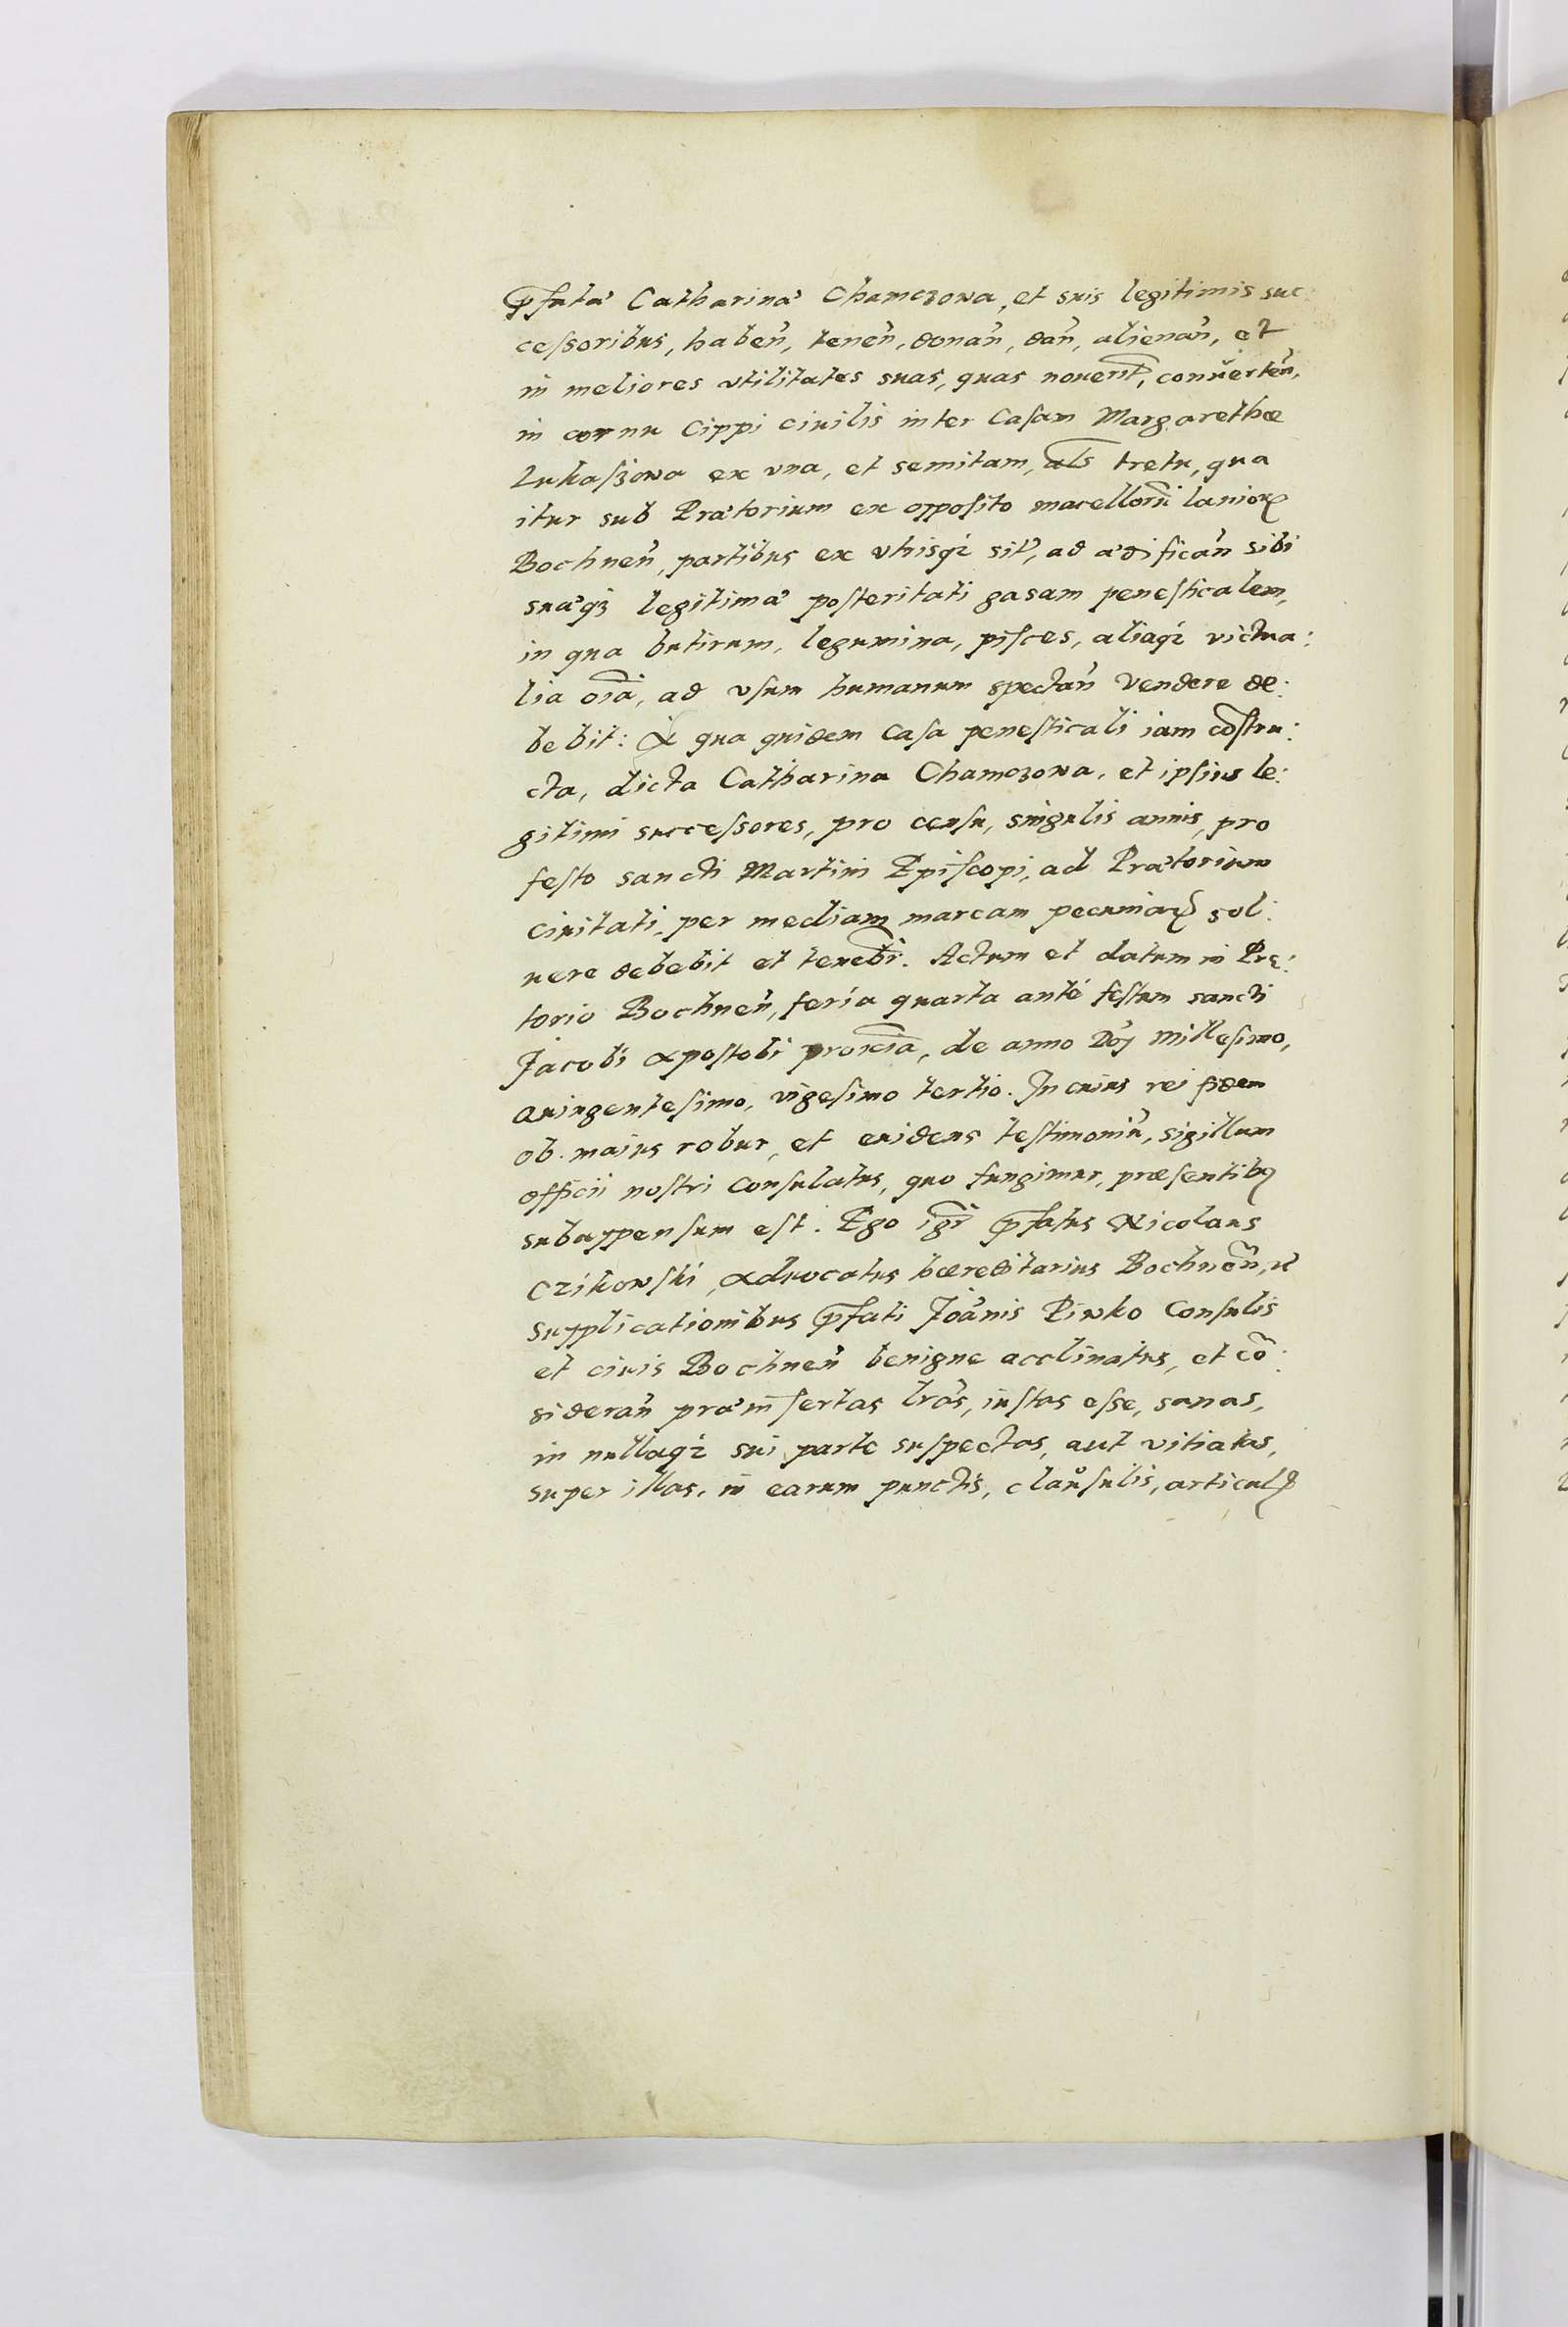 p̄fatæ Catharinæ Chamczowa, et suis legitimis suc:
ceſsoribus, haben̄, tenen̄, donan̄, dan̄, alienan̄, et
in meliores vtilitates suas, quas nouerit, conuerten̄,
in cornu Cippi ciuilis inter Caſam Margarethæ
Lukaſzowa ex vna, et semitam, al̄s tretu, qua
itur sub Prætorium ex oppoſito macellorū lanioꝝ
Bochnen̄, partibus ex vtrisqꝫ sit̄, ad ædifican̄ sibi
suæqꝫ legitimæ poſteritati gasam peneſticalem,
in qua butirum, legumina, piſces, aliaqꝫ victua:
lia oīa, ad vſum humanum spectan̄ Vendere de:
bebit: A qua quidem Caſa peneſticali iam cōſtru:
cta, dicta Catharina Chamczowa, et ipſius le:
gitimi succeſsores, pro cenſu, singulis annis, pro
feſto sancti Martini Epiſcopi, ad Prætorium
ciuitati, per mediam marcam pecuniaꝝ sol:
uere debebit et tenebīt. Actum et datum in Præ:
torio Bochnen̄, feria quarta ante feſtum sancti
Jacobi Apoſtoli proxīa, de anno Dn̄j Milleſimo,
Quingenteſimo, vigeſimo tertio. In cuius rei fidem
ob. maius robur, et euidens teſtimoniū, sigillum
officii noſtri Conſulatus, quo fungimur, præſentibꝫ
subappenſum eſt. Ego igr̄ p̄fatus Nicolaus
Czikowſki, Aduocatus hæreditarius Bochnen̄,
supplicationibus p̄fati Joān̄is Pinko Conſulis
et ciuis Bochnen̄ benigne acclinatus, et cō:
sideran̄ præinſertas lr̄as, iuſtas eſse, sanas,
in nullaqꝫ sui parte suſpectas, aut vitiatas,
super illas, in earum punctis, clauſulis, articulꝭ